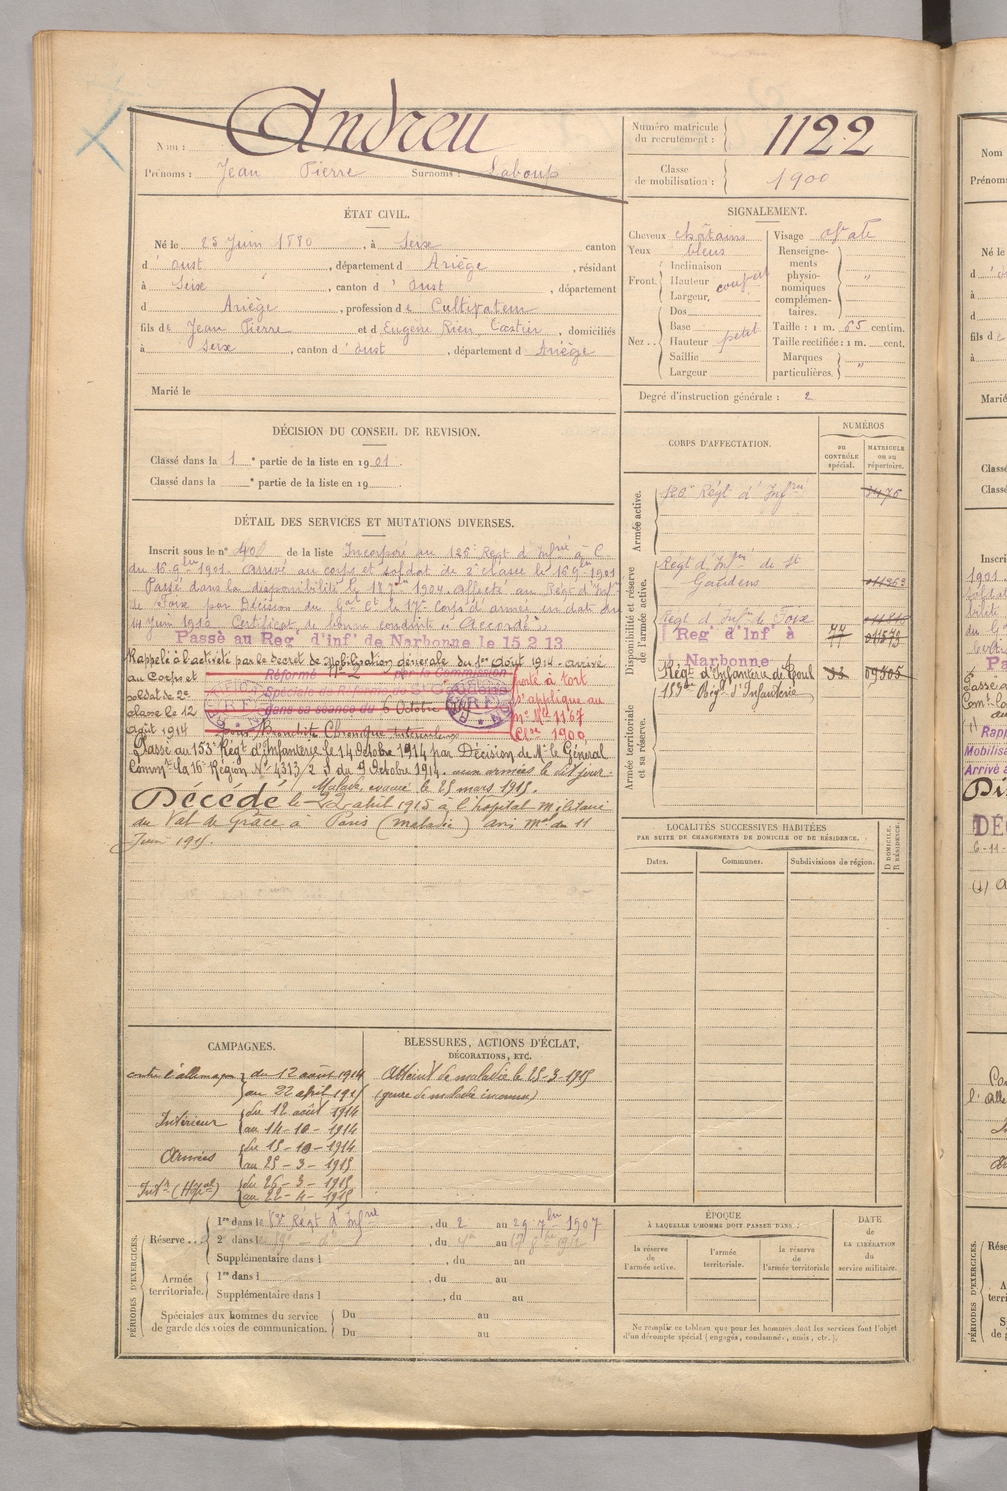 Nom : Andreu
Prénoms : Jean Pierre Surnoms : Laboup
Numéro matricule du recrutement : 1122
Classe de mobilisation : 1900
ÉTAT CIVIL.
Né le 25 Juin 1880, à Seix canton
d'oust, département d Ariège, résidant
à Seix, canton d'oust, département
d Ariège, profession de Cultivateur
fils de Jean Pierre et d Eugène Rieu Castier, domiciliés
à Seix, canton d'oust, département d Ariège
Marié le
SIGNALEMENT.
Cheveux châtains
Yeux bleus
Front. Inclinaison
Hauteur
Largeur,
Nez .. Dos
Base
Hauteur petit
Saillie
Largeur
Visage ovale
Renseignements physionomiques complémentaires. "
Taille : 1 m. 65 centim.
Taille rectifiée : 1 m. cent.
Marques particulières. "
Degré d'instruction générale : 2
DÉCISION DU CONSEIL DE REVISION.
Classé dans la 1e partie de la liste en 1901.
Classé dans la e partie de la liste en 19
CORPS D'AFFECTATION.
NUMÉROS
au CONTRÔLE spécial.
MATRICULE ou au répertoire.
Armée active.
126e Régt d'Infrie
Disponibilité et réserve de l'armée active.
Régt d'Infrie de St
Gaudens
Régt d'Infrie de Foix
Régt d'Inf à
Narbonne 77
Régt d'Infanterie de Toul 33 09505
153e Régt d'Infanterie
Armée territoriale et sa réserve.
DÉTAIL DES SERVICES ET MUTATIONS DIVERSES.
Inscrit sous le n° 40 de la liste Incorporé au 126e Régt d'Infrie à C.
du 16 9bre 1901. arrivé au corps et soldat de 2e classe le 16 9bre 1901
Passé dans la disponibilité le 18 7bre 1904. affecté au Régt d'Infie
de Foix par Décision du Gal Ct le 17e Corps d'armée en date du
14 Juin 1912 Certificat de bonne conduite "Accordé"
Passé au Reg' d'inf' de Narbonne le 15.2.13
Rappelé à l'activité par le décret de Mobilisation générale du 1er août 1914 - arrivé
au Corps et
soldat de 2e
classe le 12
août 1914
Réformé N° 2 par la Commission
Spéciale de Réforme de St Gaudens
dans sa séance du 6 Octobre
pour Bronchite Chronique
porté à tort
s'applique au
n° Mle 1167
Clse 1900,
Passé au 153e Régt d'Infanterie le 14 Octobre 1914 par Décision de Mr le Général
Commt la 16e Région N° 4313/2 S du 9 Octobre 1914. aux armées le dit jour.
Malade évacué le 25 mars 1915.
Décédé le 22 avril 1915 à l'hôpital militaire
du Val de Grâce à Paris (maladie) avis mel du 11
Juin 1915.
LOCALITÉS SUCCESSIVES HABITÉES
PAR SUITE DE CHANGEMENTS DE DOMICILE OU DE RÉSIDENCE.
Dates. Communes. Subdivisions de région.
D DOMICILE.
R RÉSIDENCE.
CAMPAGNES.
contre l'allemagne du 12 août 1914
au 22 avril 1915
Intérieur du 12 août 1914
au 14-10-1914
Armées du 15-10-1914
au 25-3-1915
Intr (Hôpal) du 26-3-1915
au 22-4-1915
BLESSURES, ACTIONS D'ÉCLAT,
DÉCORATIONS, ETC.
Atteint de maladie le 25-3-1915
(genre de maladie inconnu)
PÉRIODES D'EXERCICES.
Réserve...
1re dans le Régt d'Infrie, du 2 au 29 7bre 1907
2e dans le, du au
Supplémentaire dans l, du au
Armée territoriale.
1re dans l, du au
Supplémentaire dans l, du au
Spéciales aux hommes du service de garde des voies de communication.
Du au
Du au
ÉPOQUE
À LAQUELLE L'HOMME DOIT PASSER DANS :
la réserve de l'armée active.
l'armée territoriale.
la réserve de l'armée territoriale
DATE
de
LA LIBÉRATION
du
service militaire.
Ne remplir ce tableau que pour les hommes dont les services font l'objet
d'un décompte spécial (engagés, condamnés, omis, etc.).